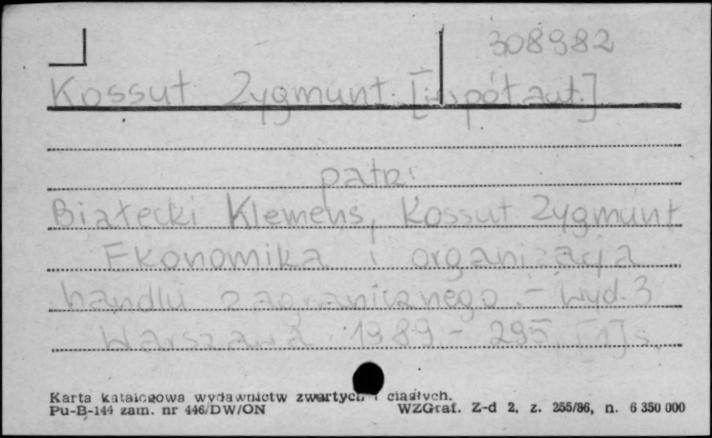 308982
Kossut Zygmunt [współaut.]
patrz:
Białecki Klemens, Kossut Zygmunt
Ekonomika i organizacja
handlu zagranicznego. - Wyd. 3
Warszawa 1989 - 295, [1] s.
Karta katalogowa wydawnictw zwartych i ciągłych.
Pu-B-144 zam. nr 446/DW/ON
WZGraf. Z-d 2, z. 255/86, n. 6 350 000